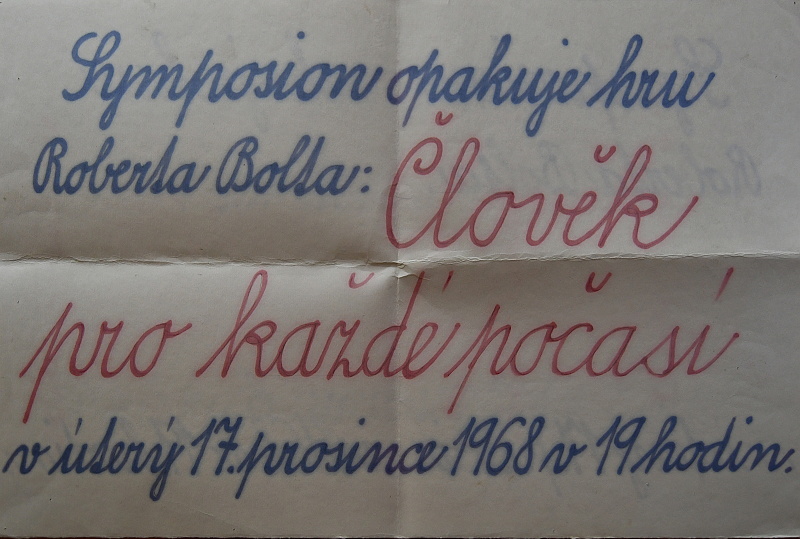 Symposion opakuje hru
Roberta Bolta: Člověk
pro každé počasí
v úterý 17. prosince 1968 v 19 hodin.